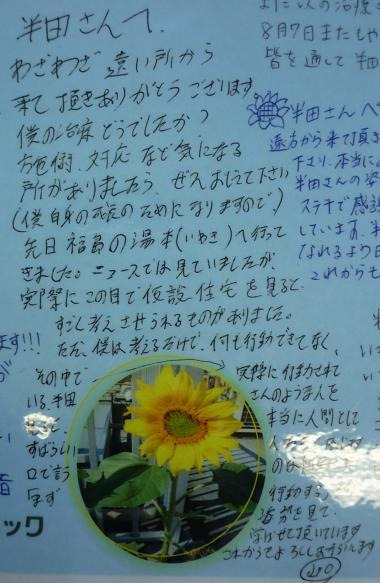 半田さんへ
わざわざ遠い所から
来て頂きありがとうございます。
僕の治療どうでしたか?
施術、対応など気になる
所がありましたら、ぜひおしえて下さい
(僕自身の成長のためになりますので)
先日福島の湯本(いわき)へ行って
きました。ニュースでは見ていましたが、
実際にこの目で仮設住宅を見ると、
すごく考えさせられるものがありました。
ただ、僕は考えるだけで、何も行動できてなく、
その中で
実際に行動されて
いる、半田
さんのような人を
本当に人間として
すばらしい
口で言う
行動する
姿が見て、
学ばせて頂いています
これからもよろしくお願いします
ック
8月7日また
皆を通して半田
半田さんへ
遠方から来て頂き
下さり、本当に
半田さんの姿
ステキで感謝
しています。半
なれるよう日
これからも
ます!!!
音